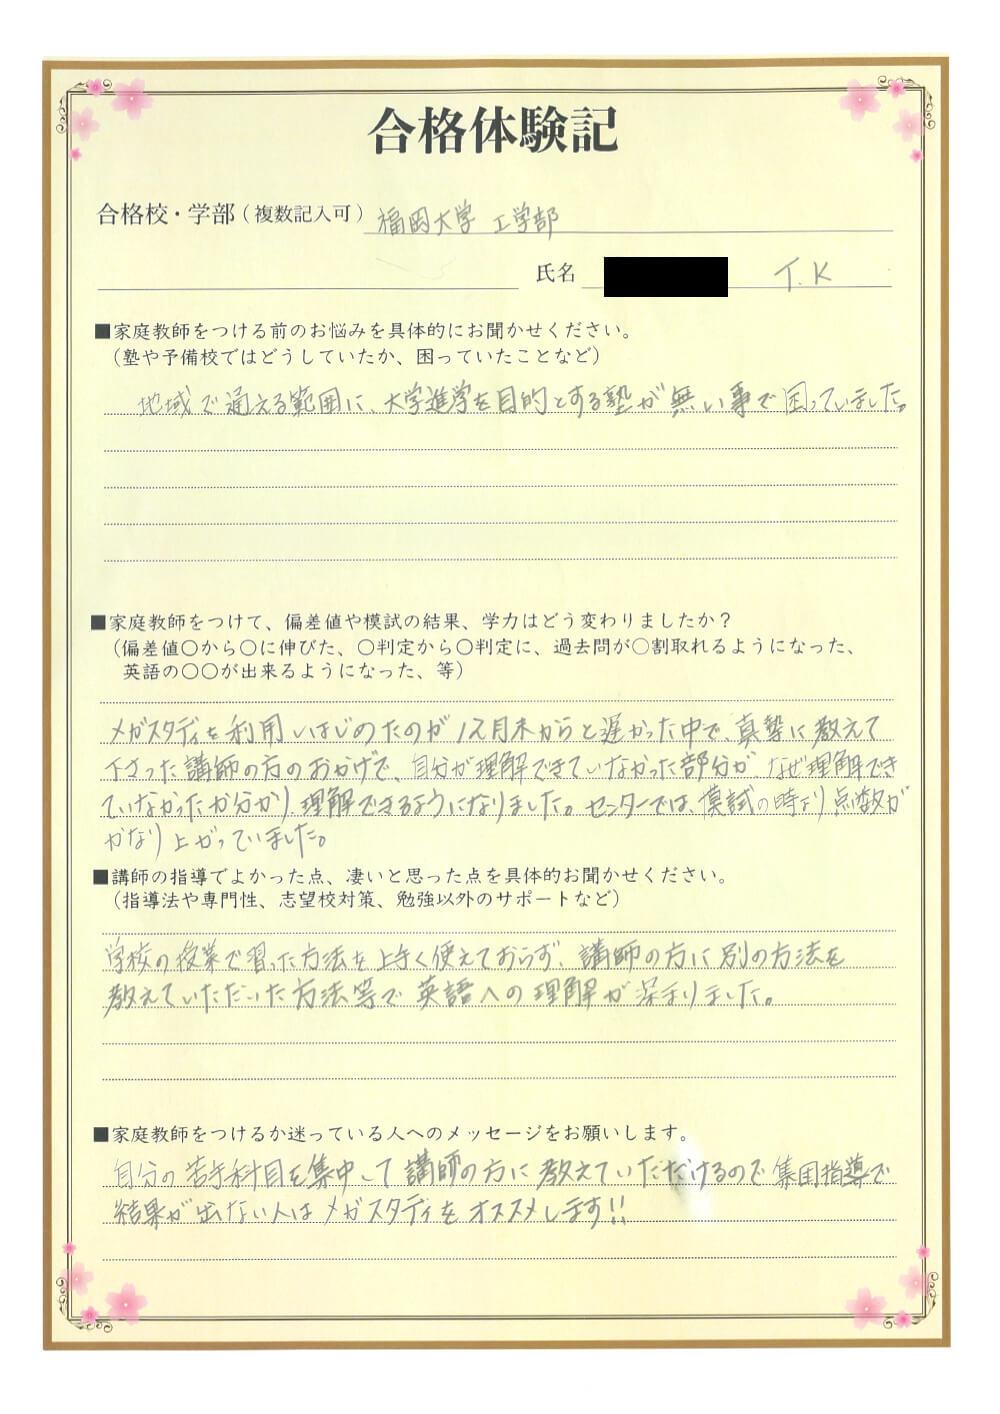 合格体験記
合格校・学部（複数記入可） 福岡大学 工学部
氏名 T.K
■家庭教師をつける前のお悩みを具体的にお聞かせください。
（塾や予備校ではどうしていたか、困っていたことなど）
地域で通える範囲に、大学進学を目的とする塾が無い事で困っていました。
■家庭教師をつけて、偏差値や模試の結果、学力はどう変わりましたか？
（偏差値〇から〇に伸びた、〇判定から〇判定に、過去問が〇割取れるようになった、
英語の〇〇が出来るようになった、等）
メガスタディを利用しはじめたのが12月末からと遅かった中で、真摯に教えて
下さった講師の方のおかげで、自分が理解できていなかった部分が、なぜ理解でき
ていなかったか分かり、理解できるようになりました。センターでは、模試の時より点数が
かなり上がっていました。
■講師の指導でよかった点、凄いと思った点を具体的お聞かせください。
（指導法や専門性、志望校対策、勉強以外のサポートなど）
学校の授業で習った方法を上手く使えておらず、講師の方に別の方法を
教えていただいた方法等で英語への理解が深まりました。
■家庭教師をつけるか迷っている人へのメッセージをお願いします。
自分の苦手科目を集中して講師の方に教えていただけるので集団指導で
結果が出ない人はメガスタディをオススメします!!